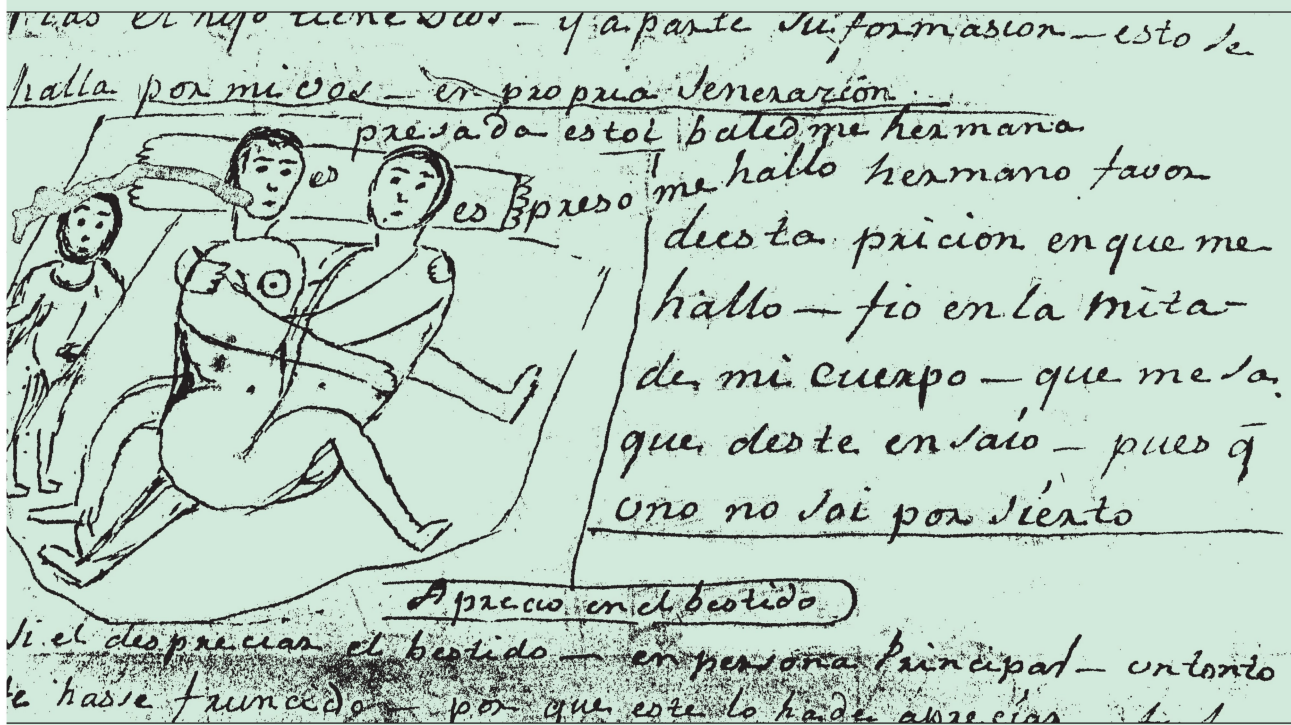 el hijo tiene Dios – y a parte su formasion – esto se
halla por mi vos – en propria Veneración
presada estoi baledme hermana
es
es preso me hallo hermano favor
deesta pricion en que me
hallo – fio en la mita-
de mi cuerpo – que me sa.
que deste ensaio – pues q̄
uno no soi por sierto
Aprecio en el bestido
Si el despreciar el bestido – en persona Principal – un tonto
hasse truncado – por que este lo ha de apreciar